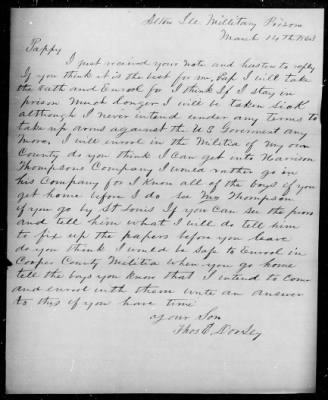 Alton Ill Millitary Prison
March 14th 1863
Pappy
I just received your note and hasten to reply
If you think it is the best for me, Pap I will take
the oath and Enrol for I think If I stay in
prison much longer I will be taken sick
although I never intend under any terms to
take up arms against the U S Goverment any
more. I will enroll in the Militia of my own
County do you think I can get into Harrison
Thompsons Company I would rather go in
his Company for I know all of the boys if you
get home before I do see Mr Thompson
if you go by St Louis If you can see the provo
and tell him what I will do tell him
to fix up the papers before you leave
do you think I would be safe to Enrol in
Cooper County Militia when you go home
tell the boys you know that I intend to come
and enrol with them write an answer
to this if you have time
your Son
Thos D. Dorsey